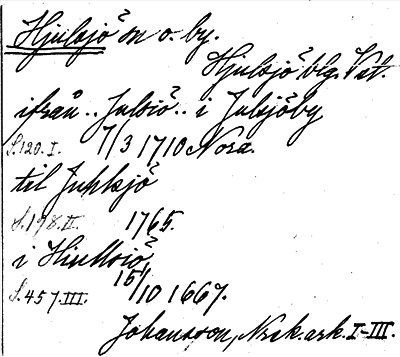 Hjulsjö sn o. by.
Hjulsjö blg. Vstl.
ifrån .. Julsiö .. i Julsjöby
S. 120. I. 7/3 1710 Nora.
til Juhlsjö
S. 198. II. 1765.
i Hiullsiö,
S. 457. III. 15/10 1667.
Johansson, Nrsk. ark. I-III.